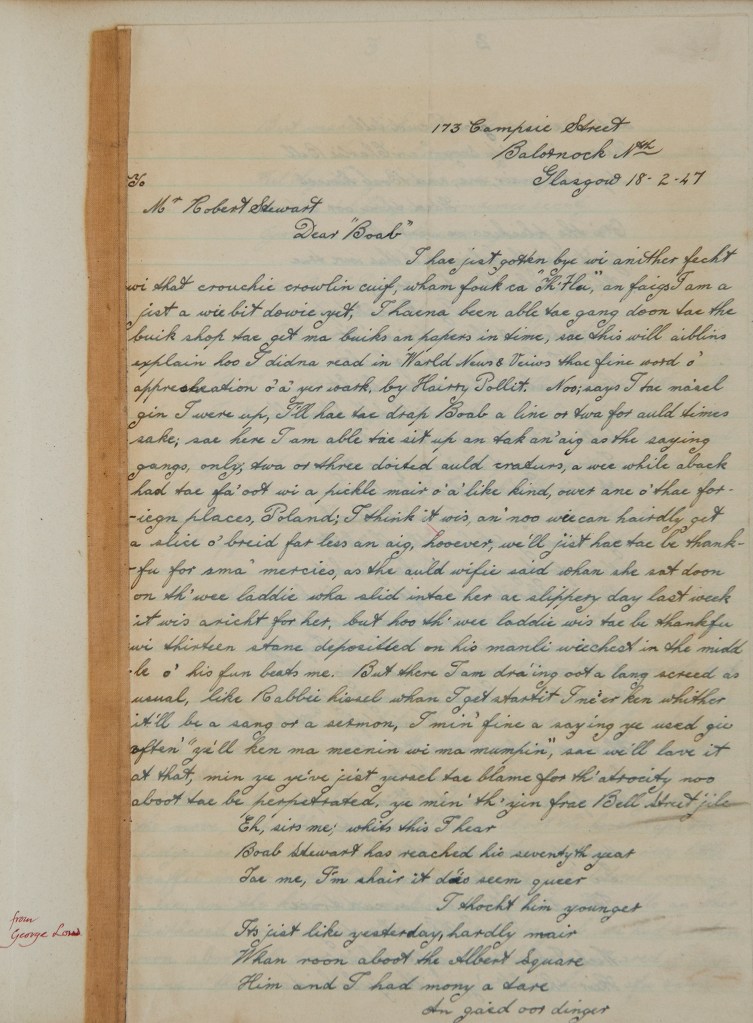 173 Campsie Street
Balornock Nth
Glasgow 18-2-47
To
Mr Robert Stewart
Dear "Boab"
I hae jist gotten bye wi anither fecht
wi that crouchie crowlin cuif, wham fouk ca "Th' Flu", an faigs I am a
jist a wie bit dowie yet, I haena been able tae gang doon tae the
buik shop tae get ma buiks an papers in time, sae this will aiblins
explain hoo I didna read in World News & Veiws thae fine word o'
appreciation o' a' yer wark, by Hairry Pollit. Noo; says I tae maisel
gin I were up, I'll hae tae drap Boab a line or twa for auld times
sake; sae here I am able tae sit up an tak an' aig as the saying
gangs, only, twa or three doited auld craturs, a wee while aback
had tae fa' oot wi a pickle mair o' a' like kind, ower ane o' thae for-
-iegn places, Poland; I think it wis, an' noo we can hairdly get
a slice o' breid far less an aig, hooever, we'll jist hae tae be thank-
-fu for sma' mercies, as the auld wifie said whan she sat doon
on th' wee laddie wha slid intae her ae slippery day last week
it wis aricht for her, but hoo th' wee laddie wis tae be thankfu
wi thirteen stane depositted on his manli wiechest in the midd
-le o' his fun beats me. But there I am dra'ing oot a lang screed as
usual, like Rabbie hissel whan I get startit I ne'er ken whither
it'll be a sang or a sermon, I min' fine a saying ye used gie
often "ye'll ken ma meenin wi ma mumpin", sae we'll lave it
at that, min ye ye've jist yersel tae blame for th' atrocity noo
aboot tae be perpetrated, ye min' th' yin frae Bell Street jile
Eh, sirs me; whits this I hear
Boab Stewart has reached his seventyth year
Tae me, I'm shair it dis seem queer
I thocht him younger
Its jist like yesterday, hardly mair
Whan roon aboot the Albert Square
Him and I had mony a tare
An gaed oor dinger
from
George Low